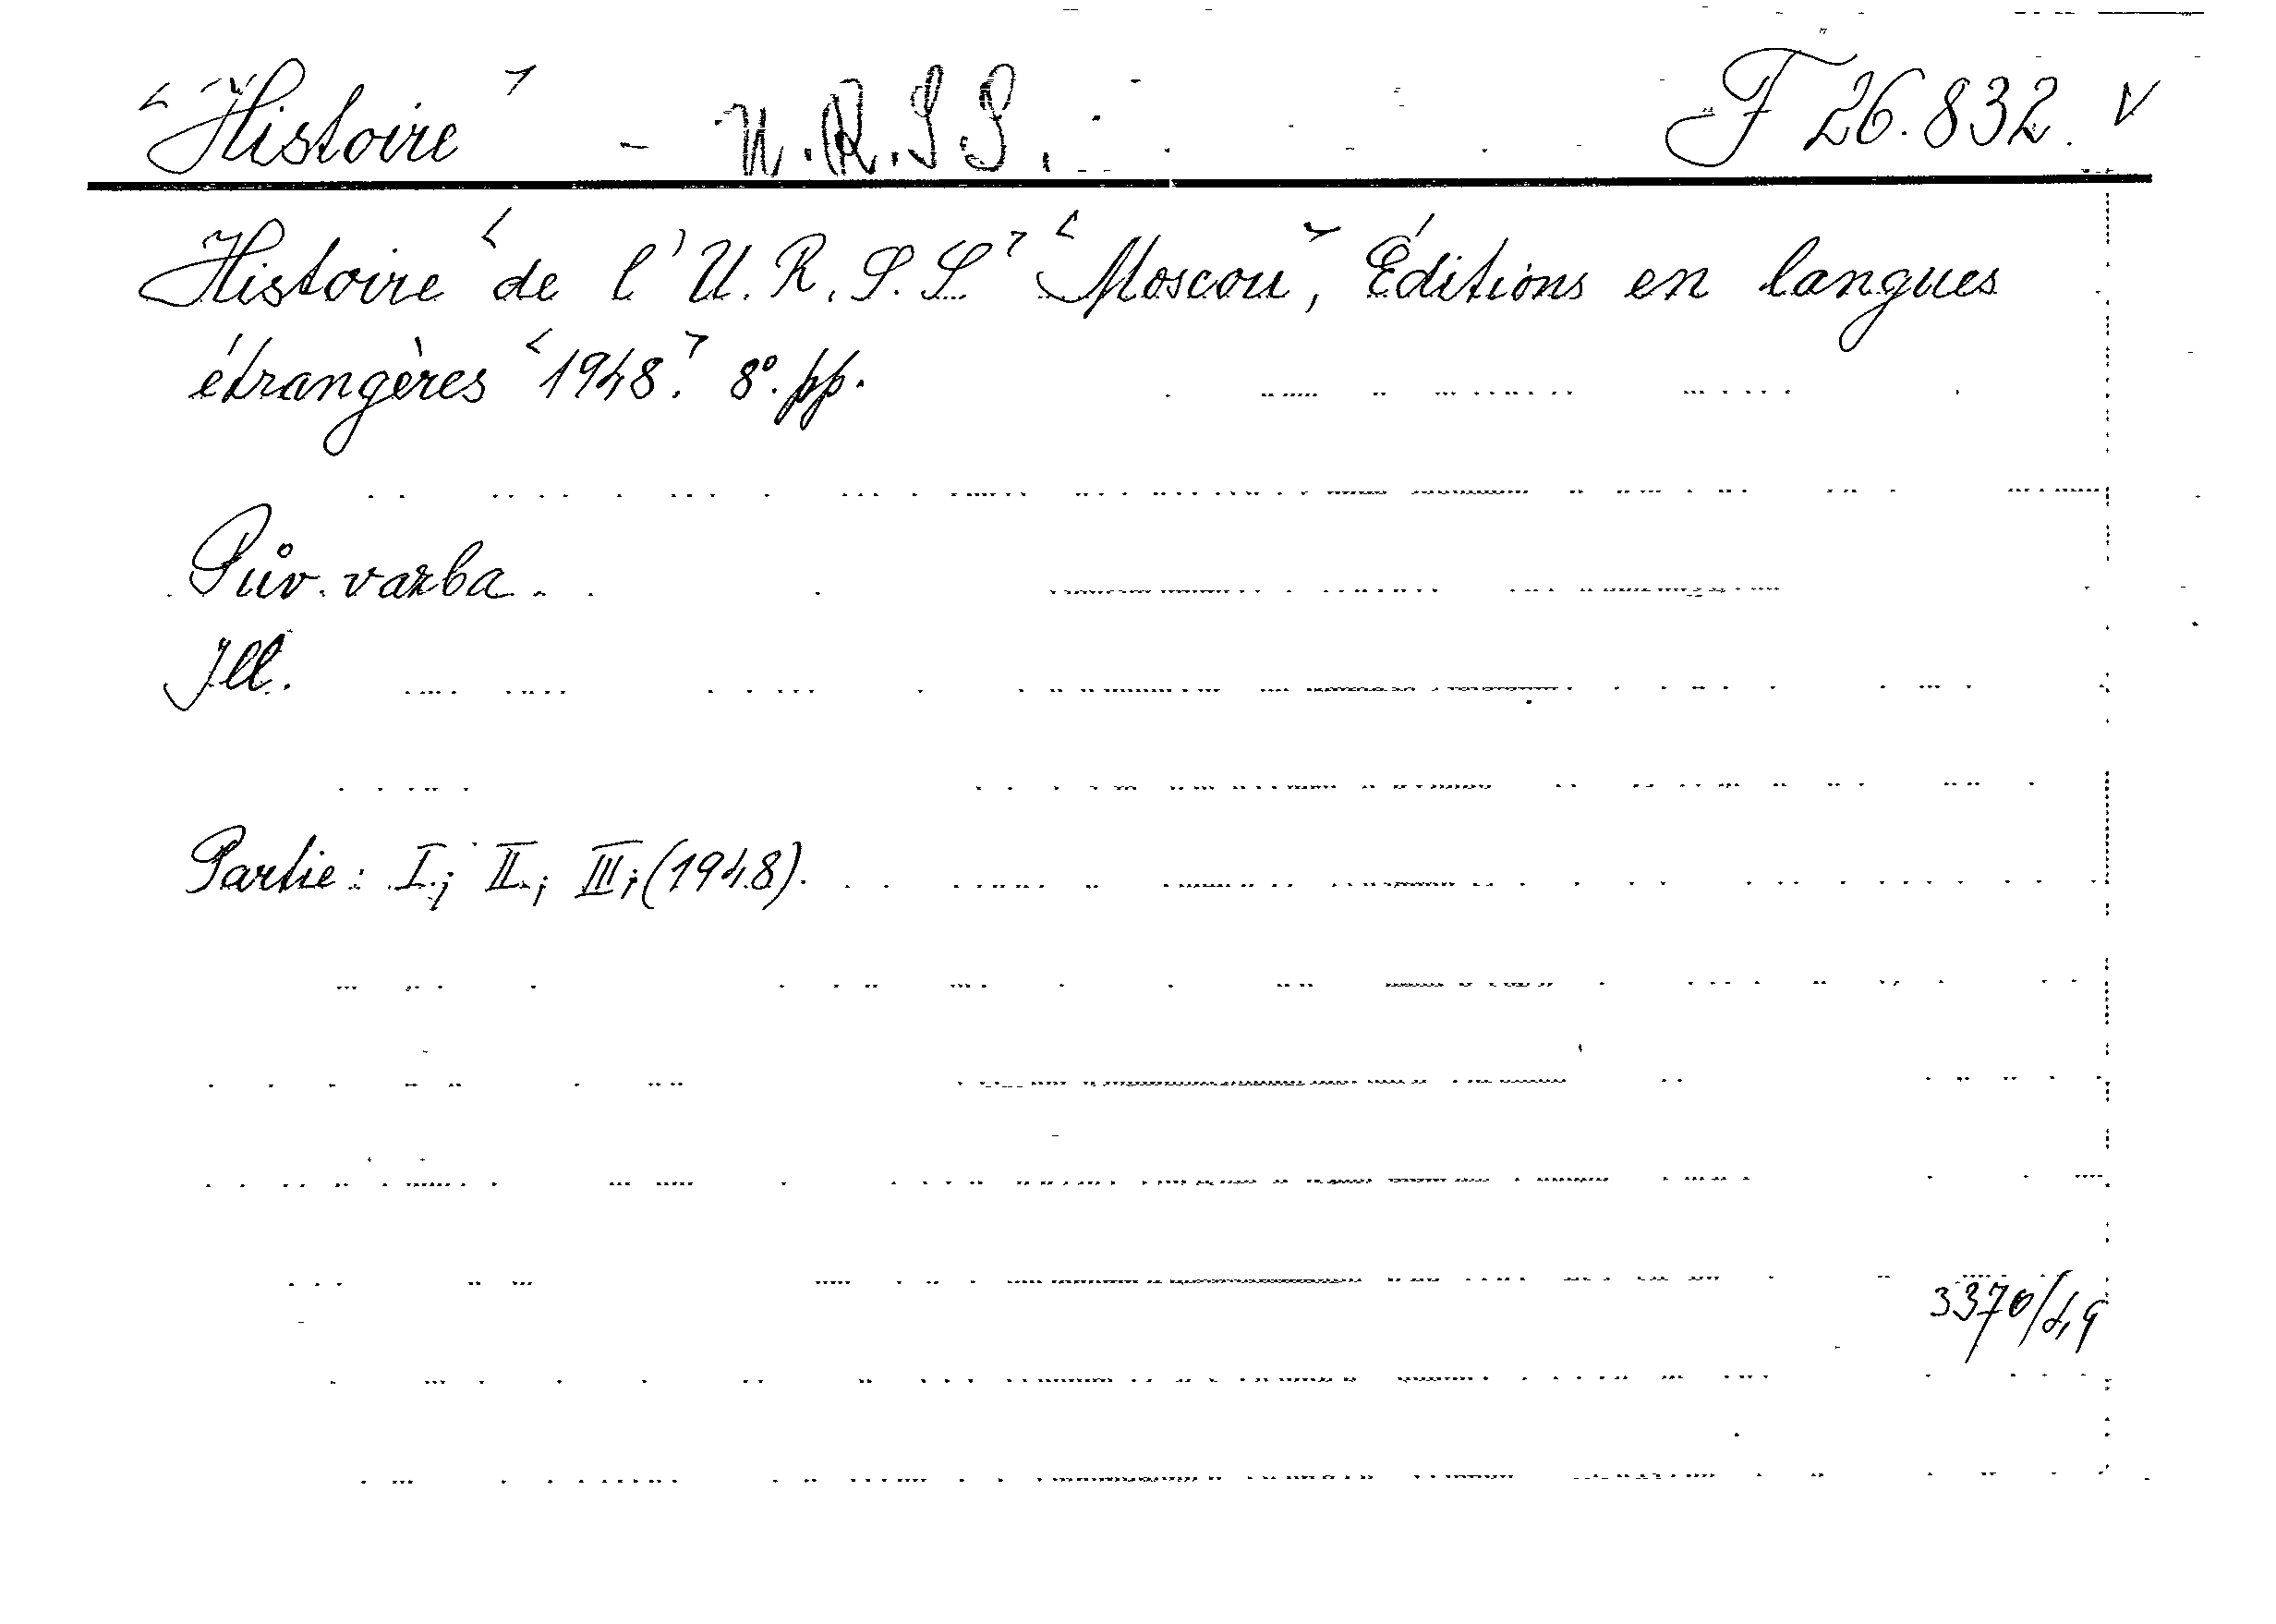 <Histoire> - U.R.S.S. F 26.832. v
Histoire <de l'U.R.S.S.> <Moscou>, Éditions en langues
étrangères <1948>. 8°. pp.
Pův. vazba.
Ill.
Partie: I.; II.; III; (1948).